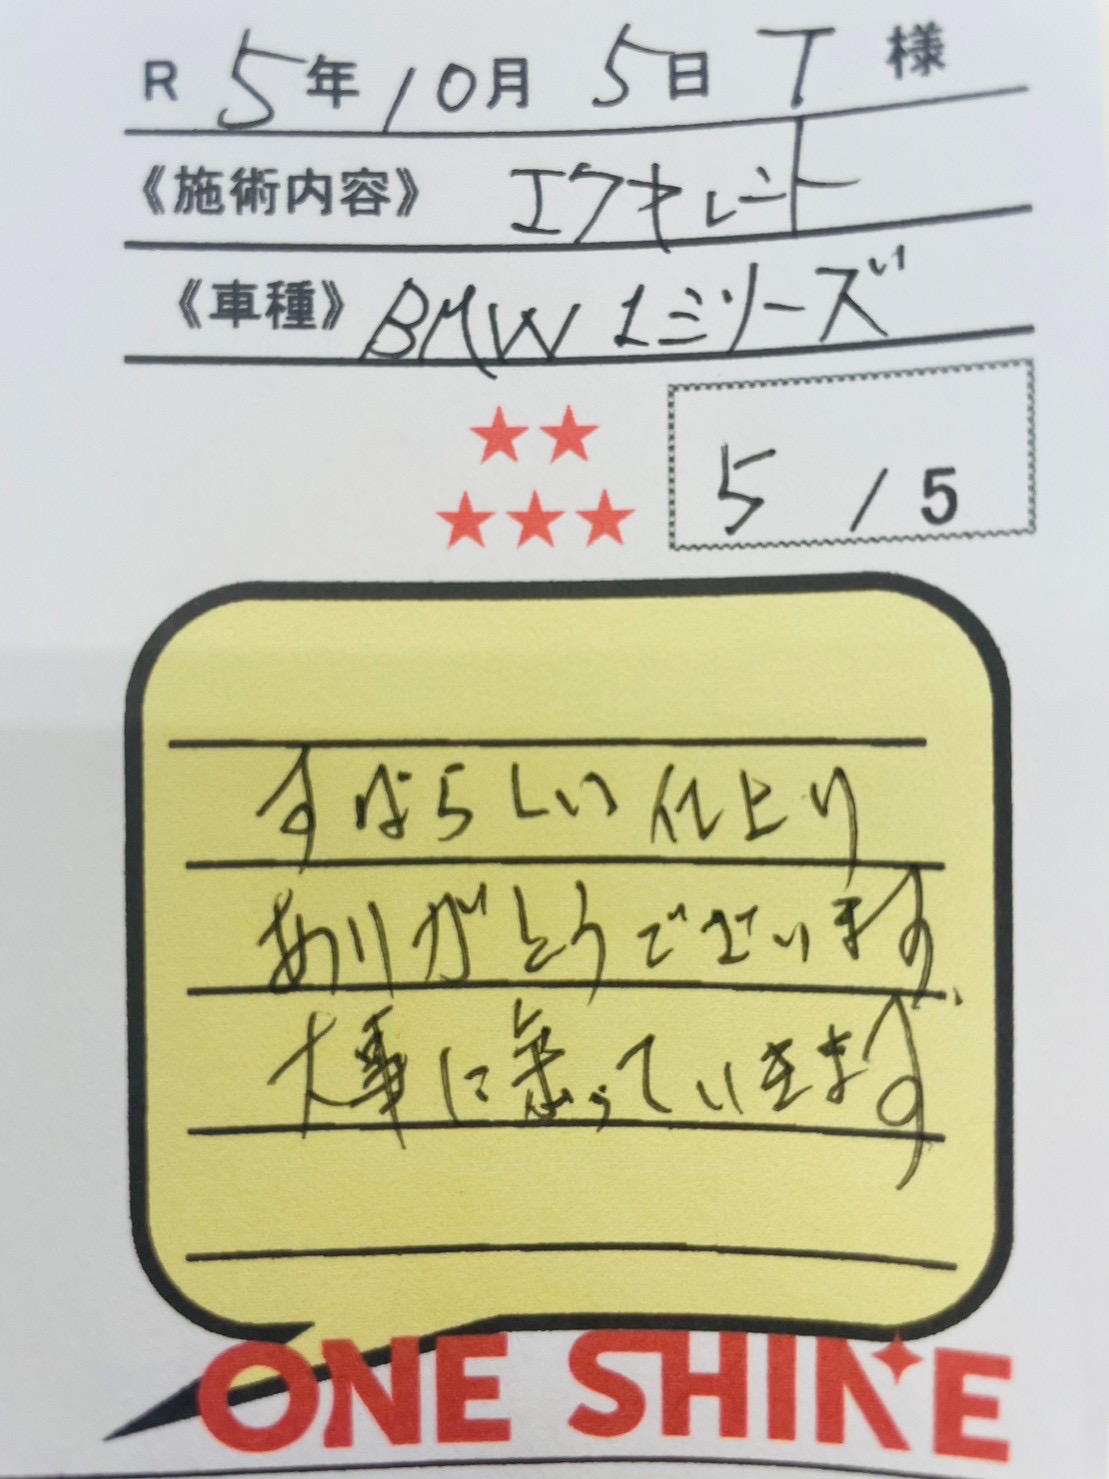 R 5年 10月 5日 T 様
《施術内容》 エクセレント
《車種》 BMW 1シリーズ
★★
★★★
5 / 5
すばらしい仕上り
ありがとうございます、
大事に乗っていきます
ONE SHINE